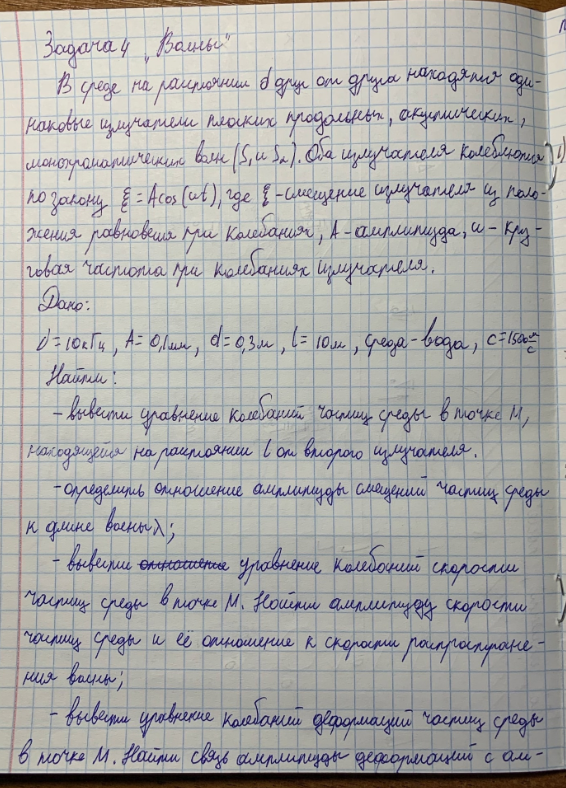 Задача 4 „Волны"
В среде на расстоянии d друг от друга находятся оди-
наковые излучатели плоских продольных, акустических,
монохроматических волн (S₁ и S₂). Оба излучателя колеблются
по закону ξ = Acos(ωt), где ξ - смещение излучателя из поло-
жения равновесия при колебаниях, A - амплитуда, ω - кру-
говая частота при колебаниях излучателя.
Дано:
ν = 10кГц, A = 0,1мм, d = 0,3м, l = 10м, среда - вода, c = 1500 м/с
Найти:
- вывести уравнение колебаний частиц среды в точке M,
находящейся на расстоянии l от второго излучателя.
- определить отношение амплитуды смещений частиц среды
к длине волны λ;
- вывести уравнение колебаний скорости
частиц среды в точке M. Найти амплитуду скорости
частиц среды и её отношение к скорости распростране-
ния волны;
- вывести уравнение колебаний деформаций частиц среды
в точке M. Найти связь амплитуды деформаций с ам-